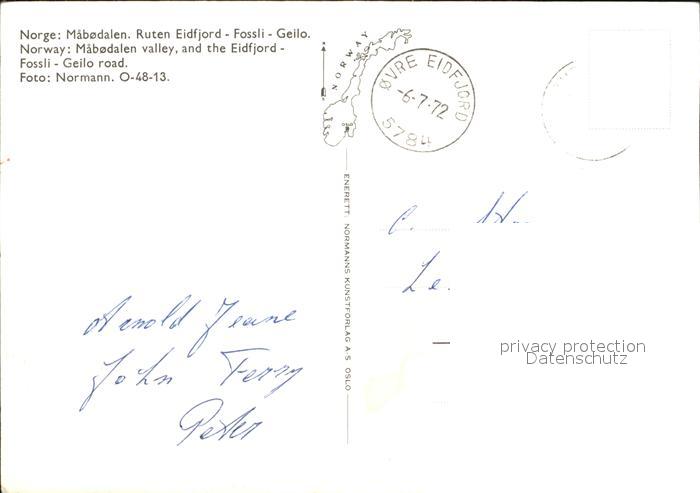 Norge: Måbødalen. Ruten Eidfjord - Fossli - Geilo.
Norway: Måbødalen valley, and the Eidfjord -
Fossli - Geilo road.
Foto: Normann. O-48-13.
NORWAY
ØVRE EIDFJORD
-6-7-72
5784
ENERETT: NORMANNS KUNSTFORLAG A·S OSLO
C. H..
Le.
Arnold Jeane
John Terry
Peter
privacy protection
Datenschutz